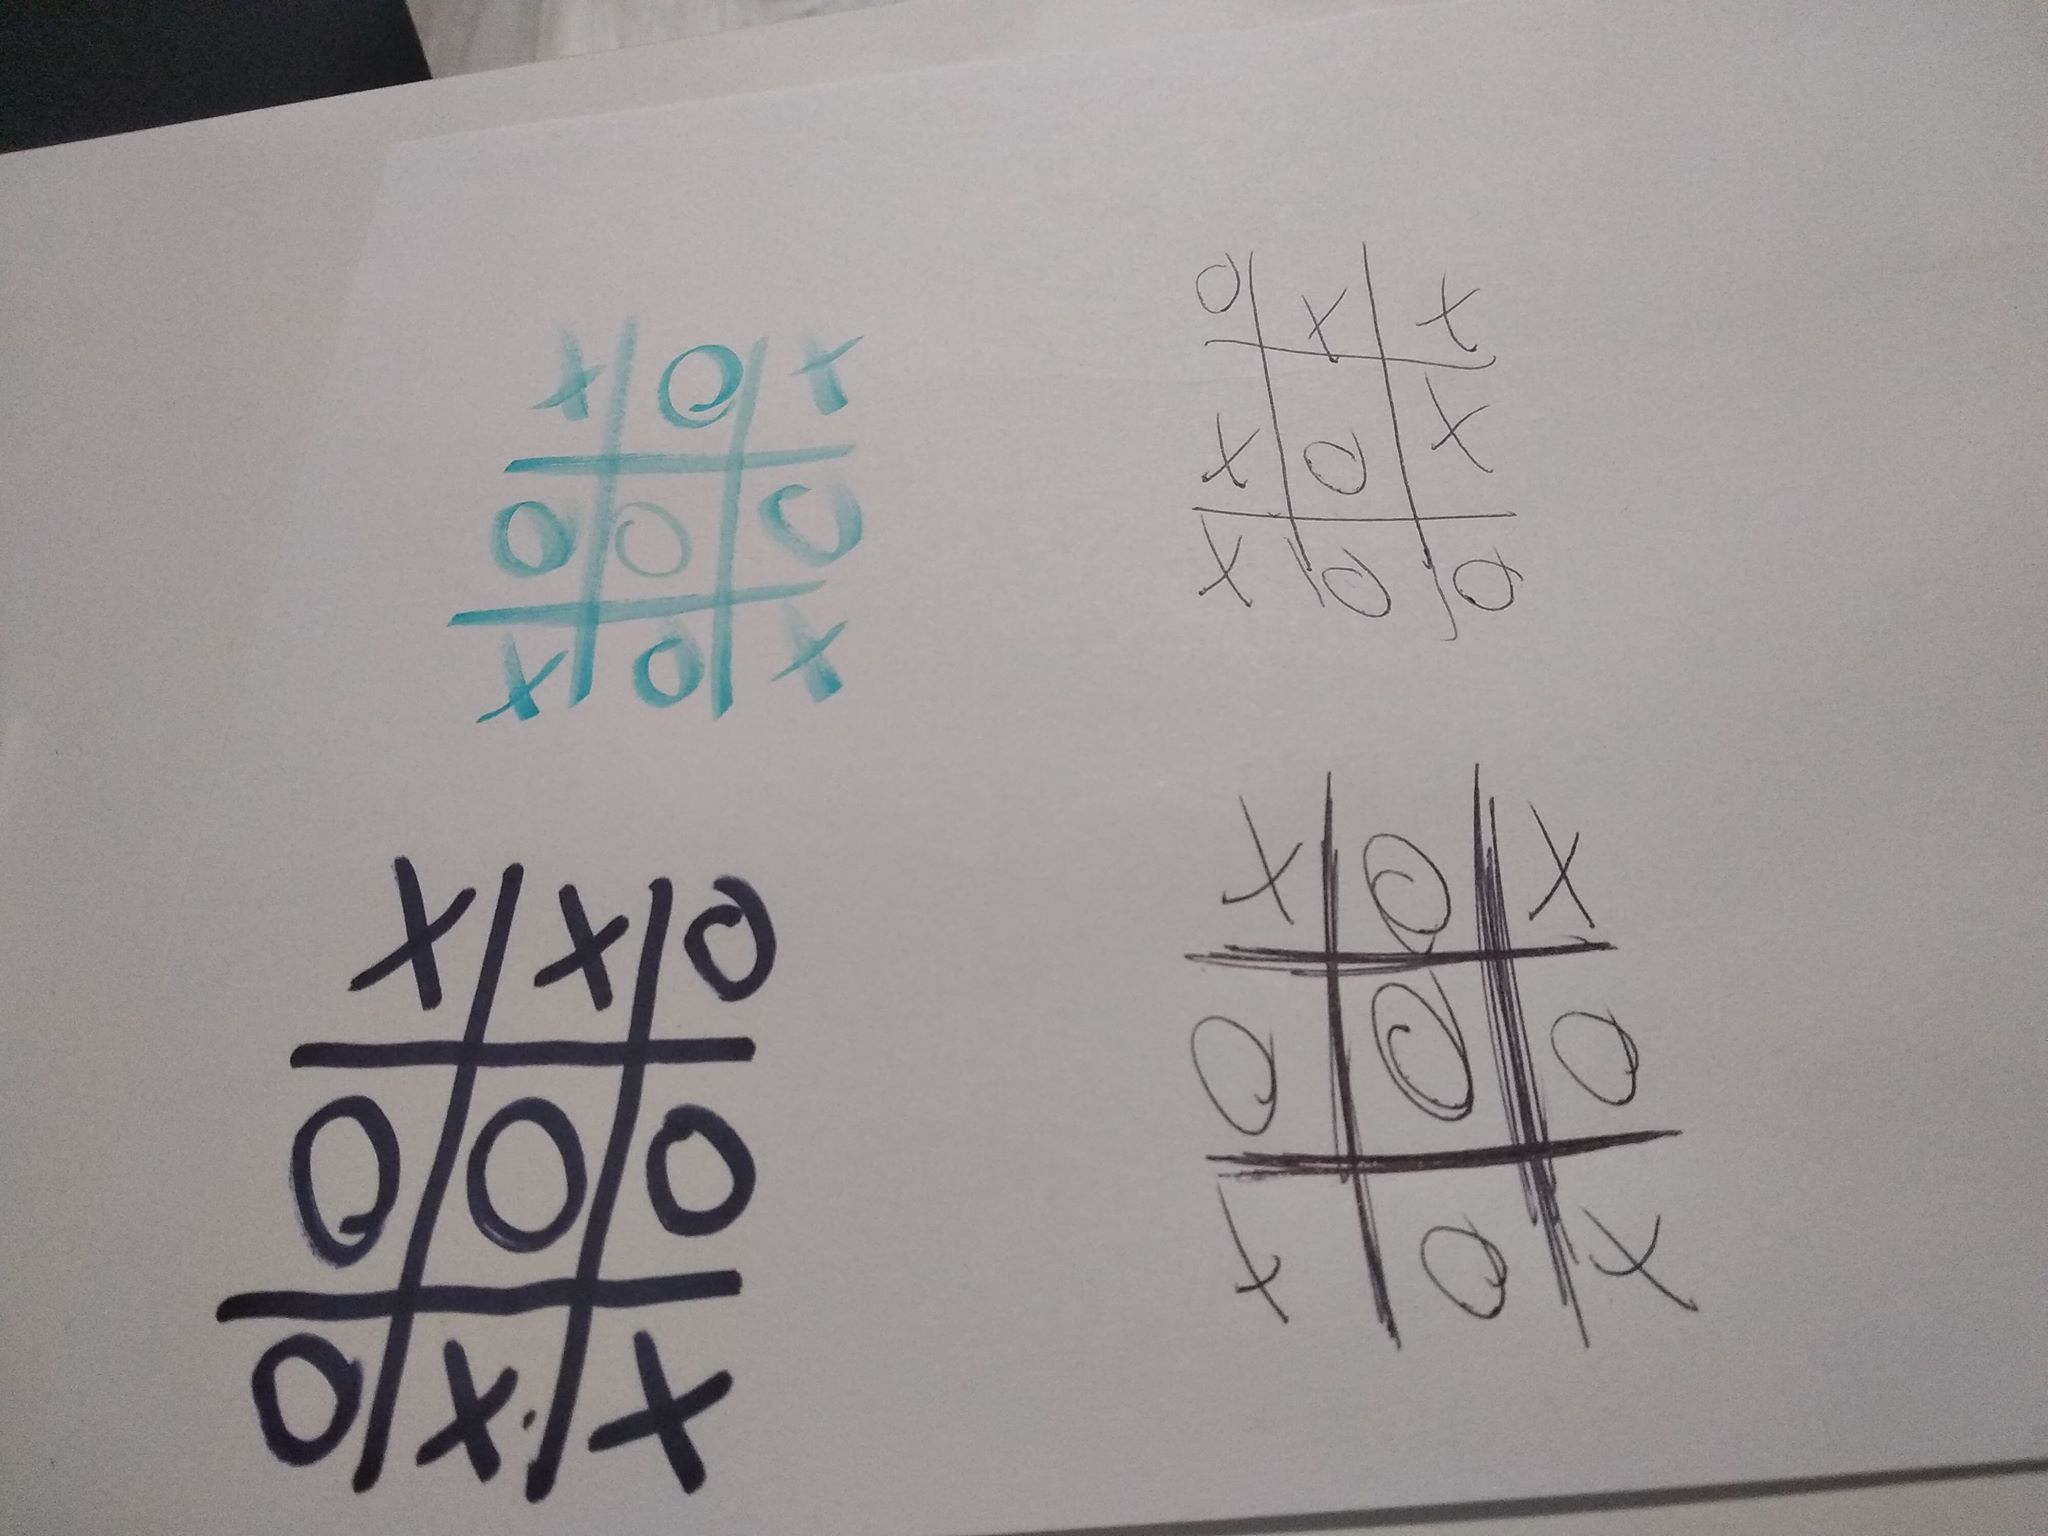 X O X
O O O
X O X
O X X
X O X
X O O
X X O
O O O
O X X
X O X
O O O
X O X